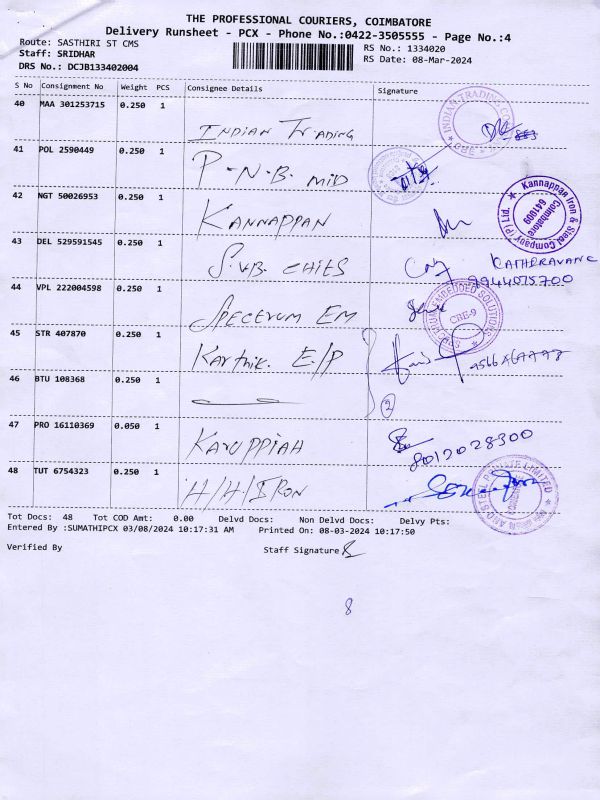 THE PROFESSIONAL COURIERS, COIMBATORE
Delivery Runsheet - PCX - Phone No.:0422-3505555 - Page No.:4
Route: SASTHIRI ST CMS
RS No.: 1334020
Staff: SRIDHAR
RS Date: 08-Mar-2024
DRS No.: DCJB133402004
S No Consignment No Weight PCS Consignee Details Signature
40 MAA 301253715 0.250 1 INDIAN TRADING
INDIAN TRADING CO CBE
41 POL 2590449 0.250 1 P.N.B. MID
42 NGT 50026953 0.250 1 KANNAPPAN
Kannappan Iron & Steel Company (P) Ltd. Coimbatore 641009
43 DEL 529591545 0.250 1 S.V.B. CHITS
44 VPL 222004598 0.250 1 SPECTRUM EM
EMBEDDED SOLUTIONS CBE-9
45 STR 407870 0.250 1 Karthik. E/P
46 BTU 108368 0.250 1
2
47 PRO 16110369 0.050 1 KARUPPIAH
8012028300
48 TUT 6754323 0.250 1 H/H/IRON
AND STEEL PRIVATE LIMITED
Tot Docs: 48 Tot COD Amt: 0.00 Delvd Docs: Non Delvd Docs: Delvy Pts:
Entered By :SUMATHIPCX 03/08/2024 10:17:31 AM Printed On: 08-03-2024 10:17:50
Verified By Staff Signature
8